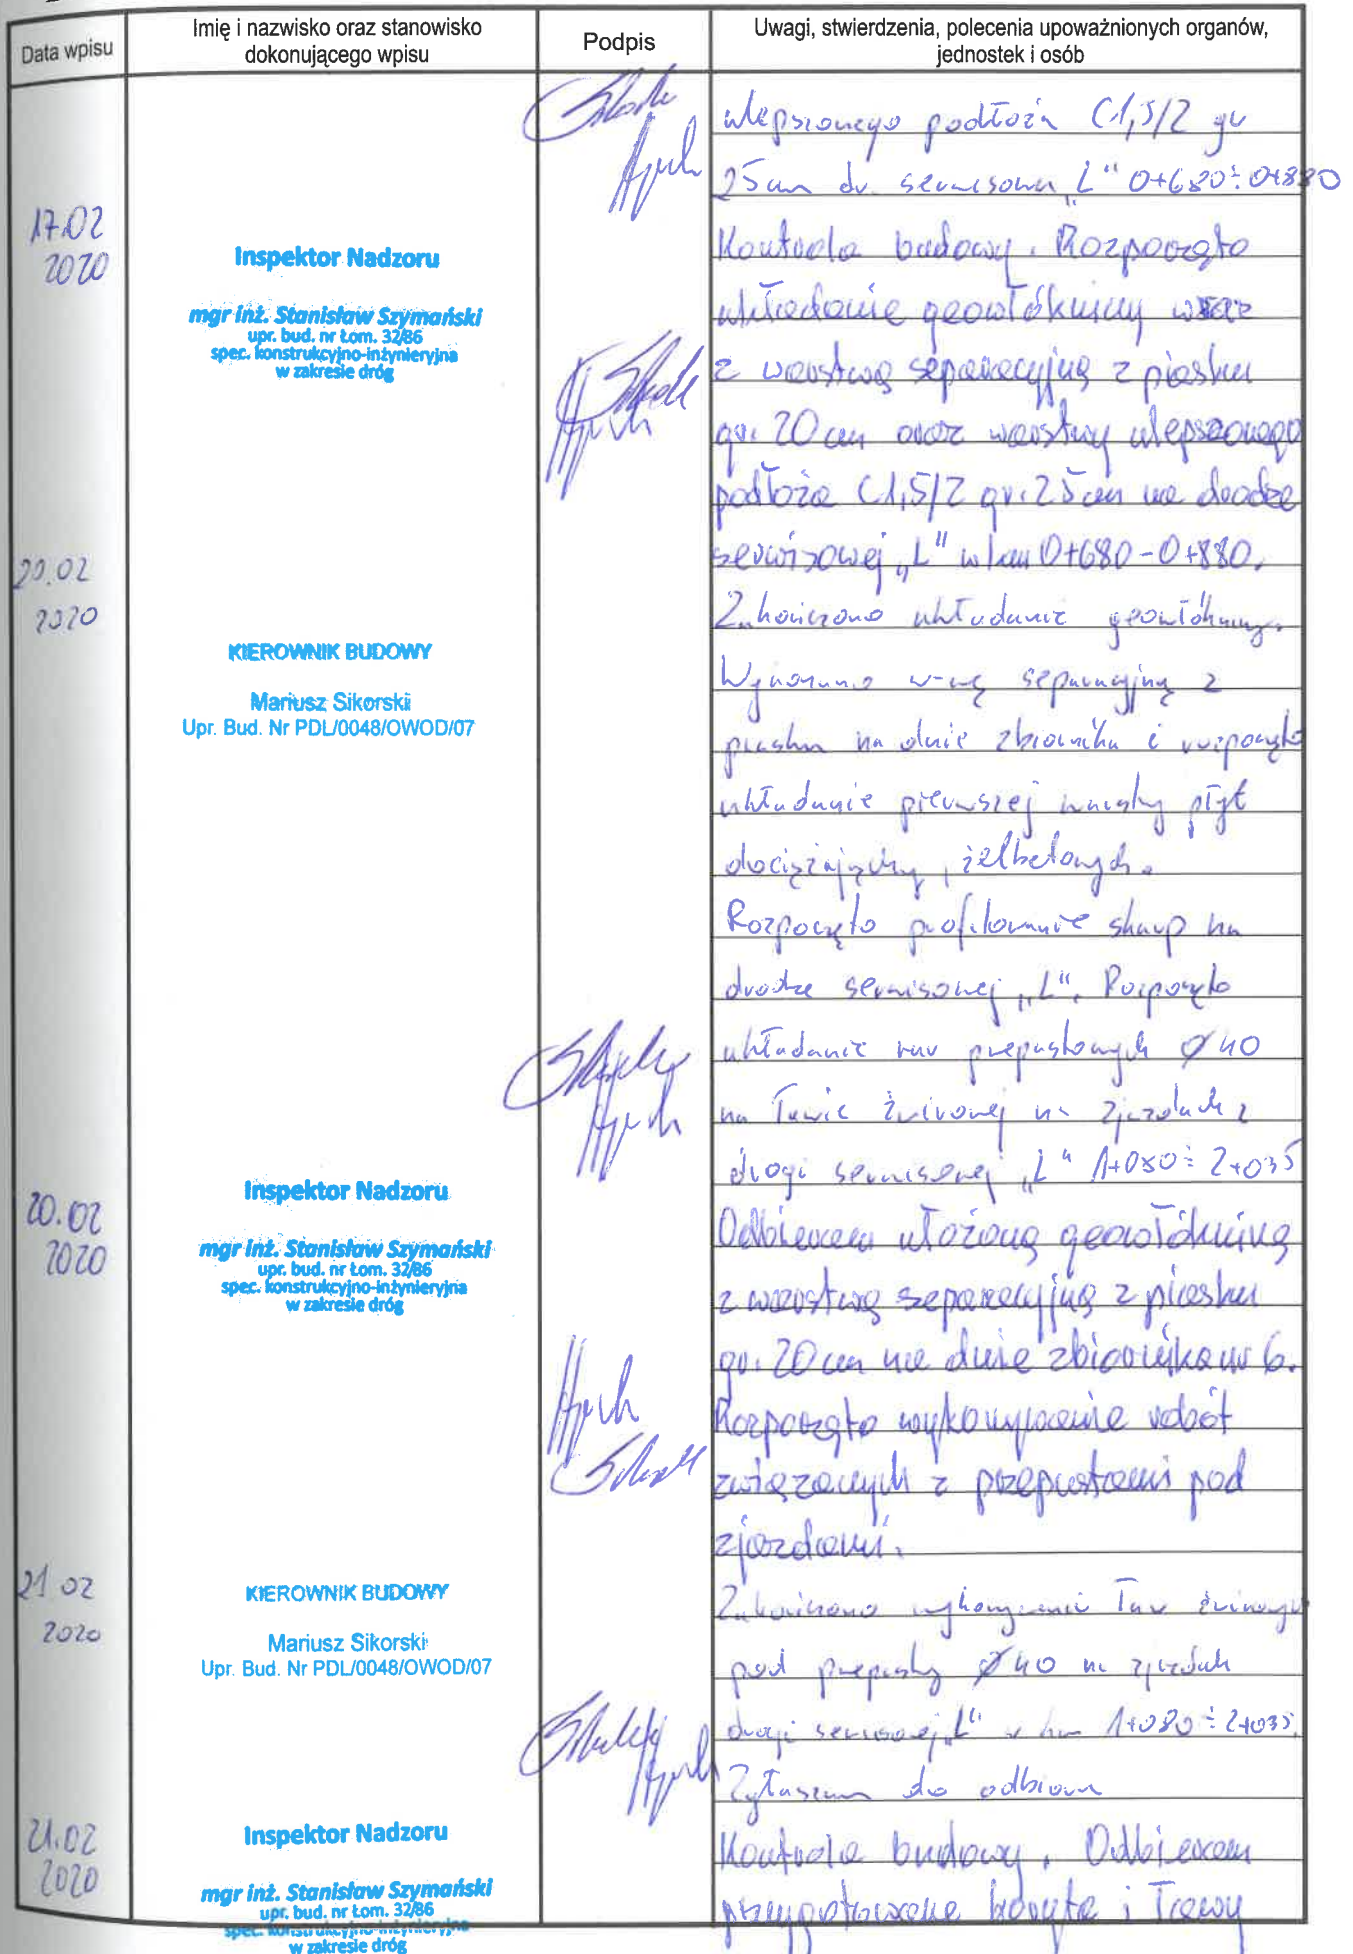 Data wpisu
Imię i nazwisko oraz stanowisko
dokonującego wpisu
Podpis
Uwagi, stwierdzenia, polecenia upoważnionych organów,
jednostek i osób
ulepszonego podłoża C1,5/2 gr
25cm dr. serwisowa „L" 0+680÷0+880
17.02
2020
Inspektor Nadzoru
mgr inż. Stanisław Szymański
upr. bud. nr Łom. 32/86
spec. konstrukcyjno-inżynieryjna
w zakresie dróg
Kontrola budowy. Rozpoczęto
układanie geowłókniny wraz
z warstwą separacyjną z piasku
gr. 20 cm oraz warstwy ulepszonego
podłoża C1,5/2 gr. 25 cm na drodze
serwisowej „L" w km 0+680-0+880.
20.02
2020
KIEROWNIK BUDOWY
Mariusz Sikorski
Upr. Bud. Nr PDL/0048/OWOD/07
Zakończono układanie geowłókniny.
Wykonano w-wę separacyjną z
piasku na dnie zbiornika i rozpoczęto
układanie pierwszej warstwy płyt
dociążający, żelbetowych.
Rozpoczęto profilowanie skarp na
drodze serwisowej „L". Rozpoczęto
układanie rur przepustowych Ø 40
na ławie żwirowej na zjazdach z
drogi serwisowej „L" 1+080÷2+035
20.02
2020
Inspektor Nadzoru
mgr inż. Stanisław Szymański
upr. bud. nr Łom. 32/86
spec. konstrukcyjno-inżynieryjna
w zakresie dróg
Odbieram ułożoną geowłókniną
z warstwą separacyjną z piasku
gr. 20 cm na dnie zbiornika nr 6.
Rozpoczęto wykonywanie robót
związanych z przepustami pod
zjazdami.
21 02
2020
KIEROWNIK BUDOWY
Mariusz Sikorski
Upr. Bud. Nr PDL/0048/OWOD/07
Zakończono wykonywanie ław żwirowych
pod przepusty Ø 40 na zjazdach
drogi serwisowej „L" w km 1+080÷2+035.
Zgłaszam do odbioru
21.02
2020
Inspektor Nadzoru
mgr inż. Stanisław Szymański
upr. bud. nr Łom. 32/86
spec. konstrukcyjno-inżynieryjna
w zakresie dróg
Kontrola budowy. Odbieram
przygotowane koryta i ławy